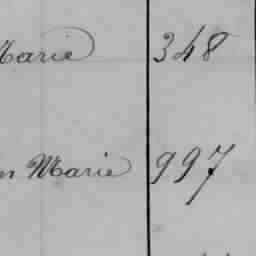 Marie 348
n Marie 997